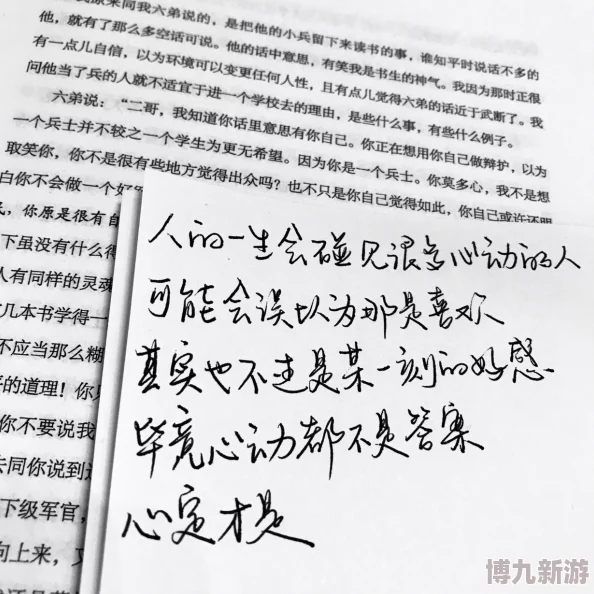 我原来同我六弟说的，是把他的小兵留下来读书的事，谁知平时说话不多的
他，就有了那么多空话可说。他的话中意思，有笑我是书生的神气。我因为那时正很
有一点儿自信，以为环境可以变更任何人性，且有点儿觉得六弟的话近于武断了。我
问他当了兵的人就不适宜于进一个学校去的理由，是些什么事，有些什么例子。
六弟说：“二哥，我知道你话里意思有你自己。你正在想用你自己做辩护，以为
一个兵士并不较之一个学生为更无希望。因为你是一个兵士。你莫多心，我不是想
取笑你，你不是很有些地方觉得出众吗？也不只是你自己觉得如此，你自己或许还明
白你不会做一个好
你原是很有自
下虽没有什么得
人有同样的灵魂
几本书学得一
不应当那么糊
的道理！你
你不要说我
去同你说到这
下级军官，
向上来，
人的一生会碰见很多心动的人
可能会误以为那是喜欢
其实也不过是某一刻的好感
毕竟心动都不是答案
心定才是
博九新游